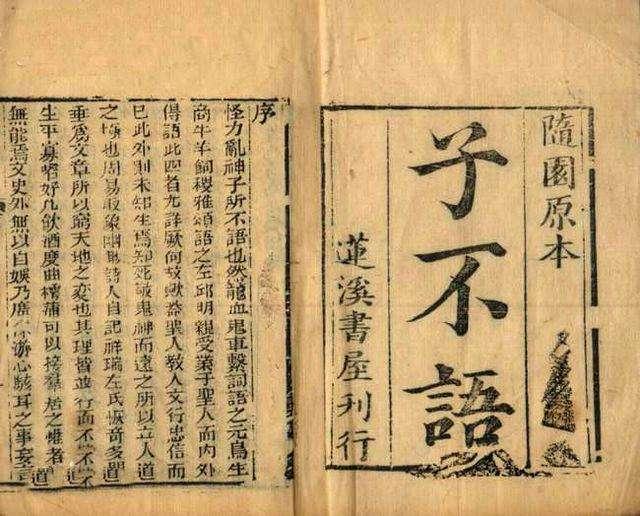 隨園原本
子不語
蓮溪書屋刊行
序
怪力亂神子所不語也然龍血鬼車繫詞語之元鳥生
商牛羊飼稷雅頌語之左邱明親受業于聖人而内外
傳語此四者尤詳厥何故歟蓋聖人教人文行忠信而
已此外則未知生焉知死敬鬼神而遠之所以立人道
之極也周易取象幽眇詩人自記祥瑞左氏恢奇多聞
垂為文章所以窮天地之變也其理皆並行而不
生平寡嗜好凡飲酒度曲樗蒲可以接羣居之懽者
無能焉文史外無以自娛乃廣游心駭耳之事妄言